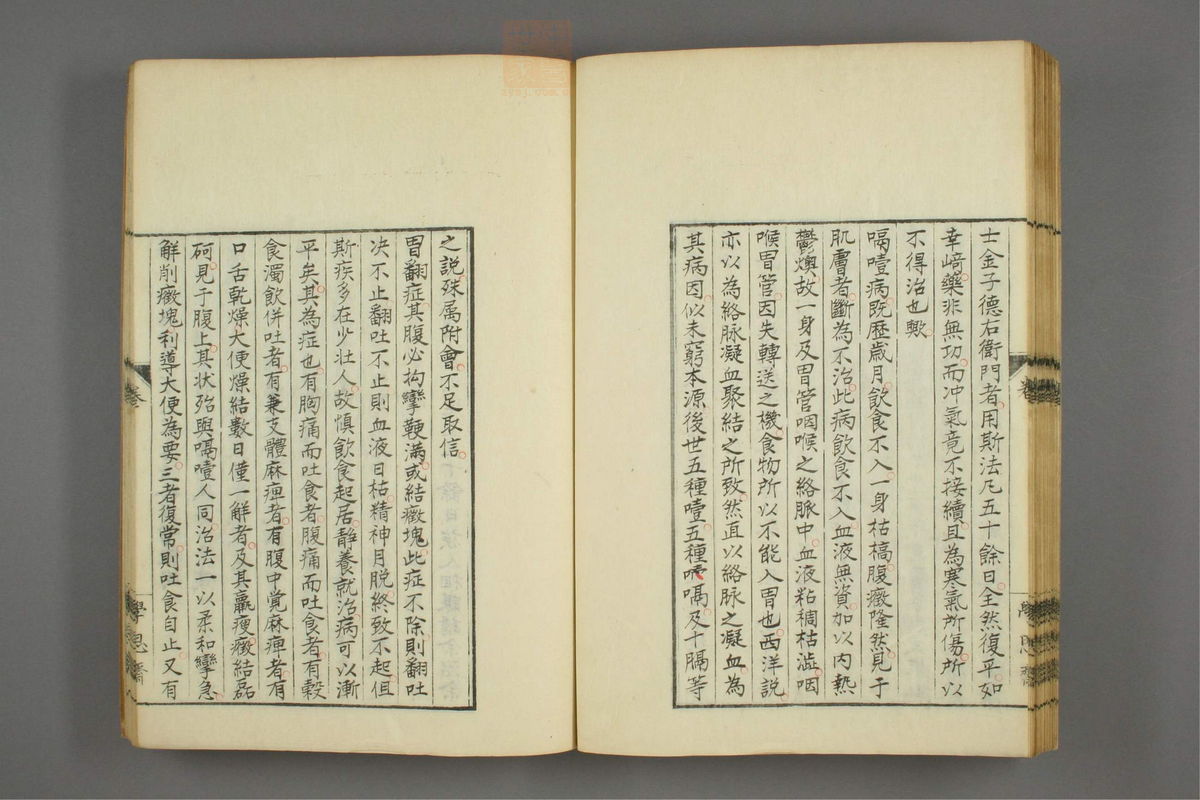 士金子德右衛門者用斯法凡五十餘日全然復平如
幸﨑藥非無功而冲氣竟不接續且為寒氣所傷所以
不得治也歟
嗝噎病既歷歲月飲食不入一身枯槁腹癥隆然見于
肌膚者斷為不治此病飲食不入血液無資加以內熱
鬱燠故一身及胃管咽喉之絡脈中血液粘稠枯澁咽
喉胃管因失轉送之機食物所以不能入胃也西洋説
亦以為絡脉凝血聚結之所致然直以絡脉之凝血為
其病因似未窮本源後世五種噎五種嗝及十膈等
之説殊属附會不足取信
胃翻症其腹必拘攣鞕滿或結癥塊此症不除則翻吐
决不止翻吐不止則血液日枯精神月脫終致不起但
斯疾多在少壯人故慎飲食起居靜養就治病可以漸
平矣其為症也有胸痛而吐食者腹痛而吐食者有穀
食濁飲併吐者有兼支體麻痺者有腹中覚麻痺者有
口舌乾燥大便燥結數日僅一解者及其羸瘦癥結磊
砢見于腹上其状殆與嗝噎人同治法一以柔和攣急
解削癥塊利導大便為要三者復常則吐食自止又有
卷
學思齋
八